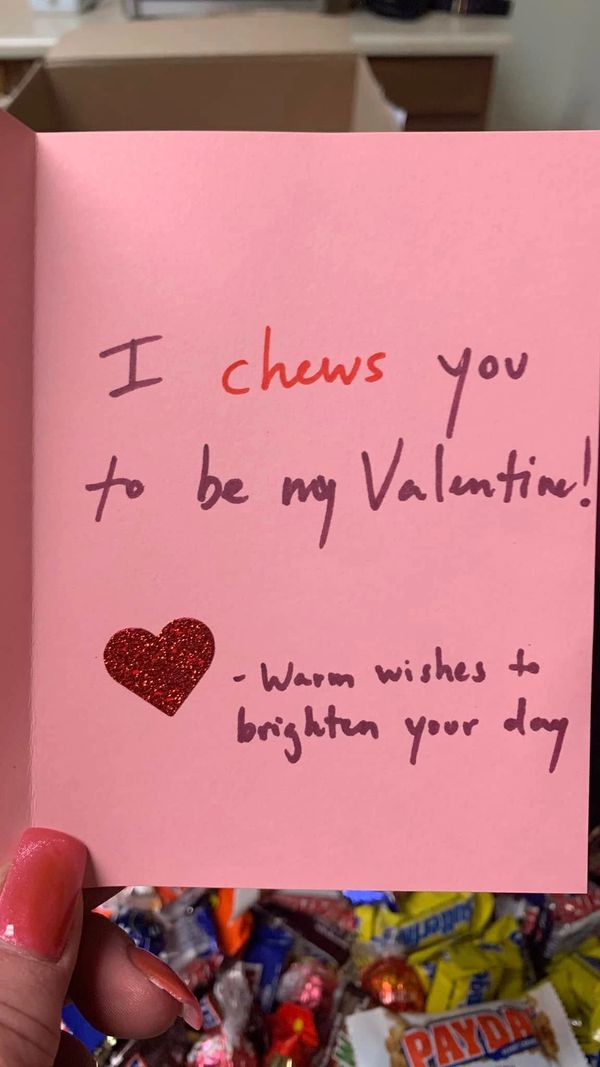 I chews you
to be my Valentine!
- Warm wishes to
brighten your day
Butterfin
PAYDA